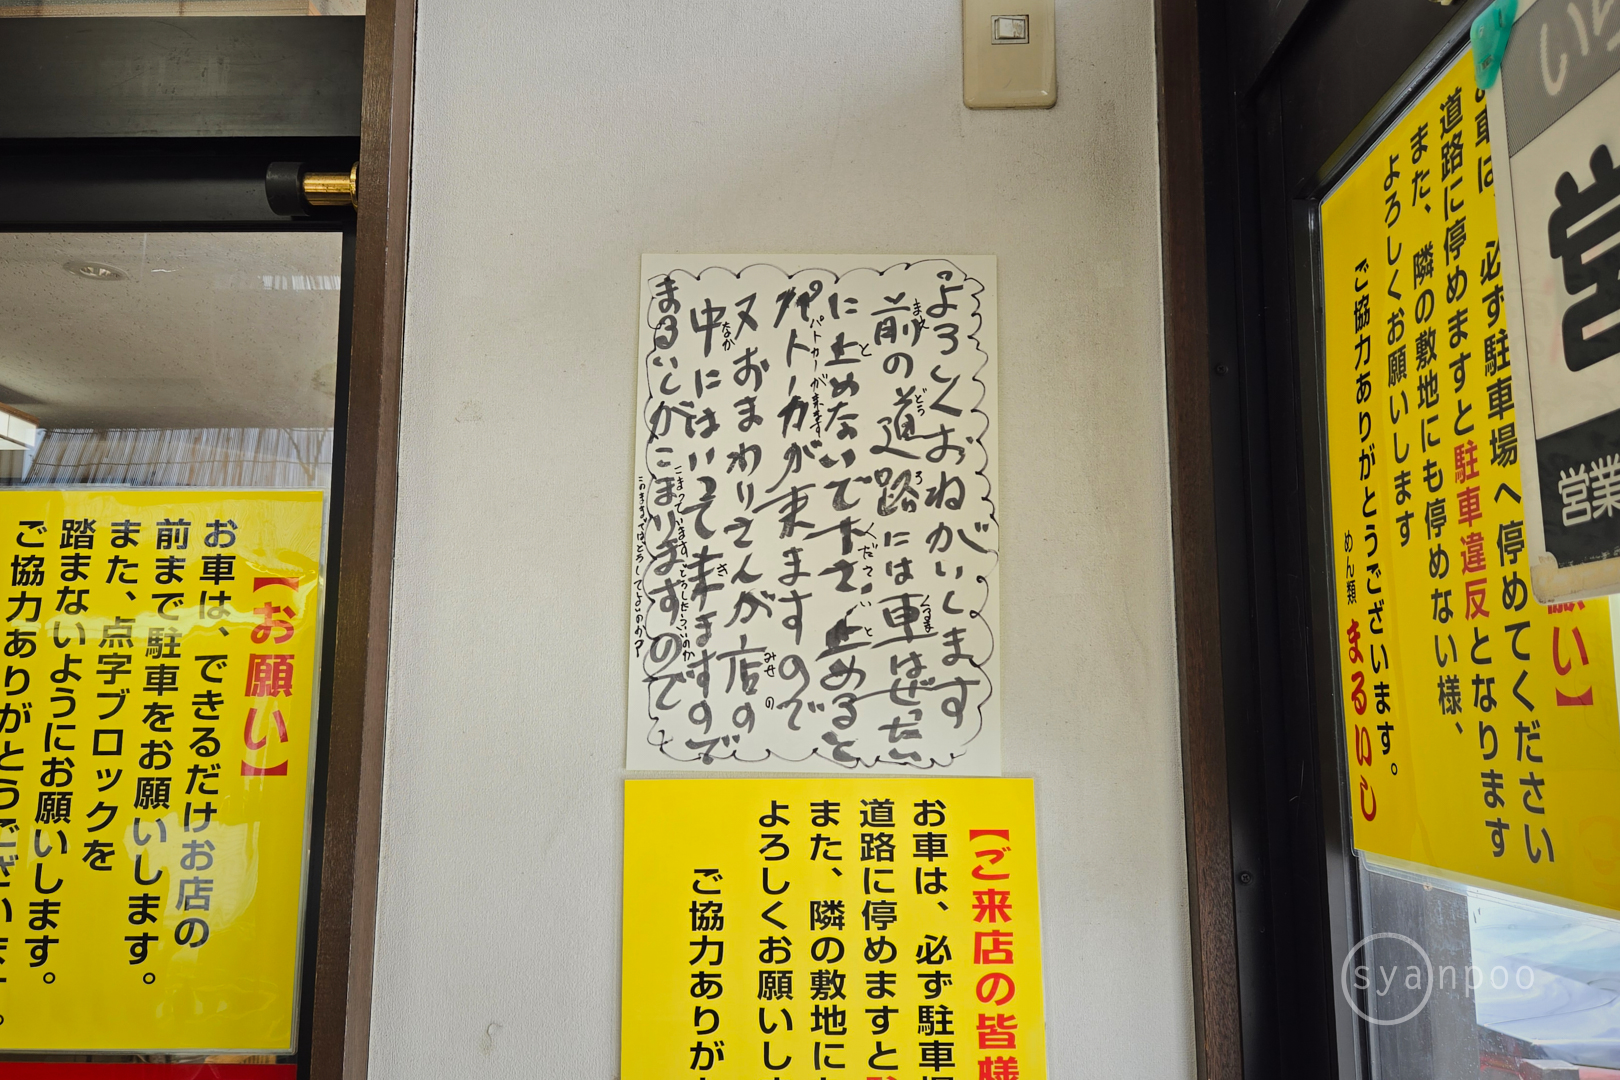 よろしくおねがいします
前の道路には車はぜったい
に止めないで下さい止めると
パトカーが来ますので
又おまわりさんが店の
中にはいって来ますので
まるいしがこまりますので
まえ
どう
ろ
くるま
と
ください
と
パトカーが来ます
みせ
の
なか
き
こまっています。どうしたらいいのか
このままではどうしてよいのか?
【お願い】
お車は、できるだけお店の
前まで駐車をお願いします。
また、点字ブロックを
踏まないようにお願いします。
ご協力ありがとうございます。
【ご来店の皆様
お車は、必ず駐車場
道路に停めますと
また、隣の敷地に
よろしくお願いし
ご協力ありが
願い】
お車は、必ず駐車場へ停めてください
道路に停めますと駐車違反となります
また、隣の敷地にも停めない様、
よろしくお願いします
ご協力ありがとうございます。
めん類 まるいし
いら
営
営業
syanpoo